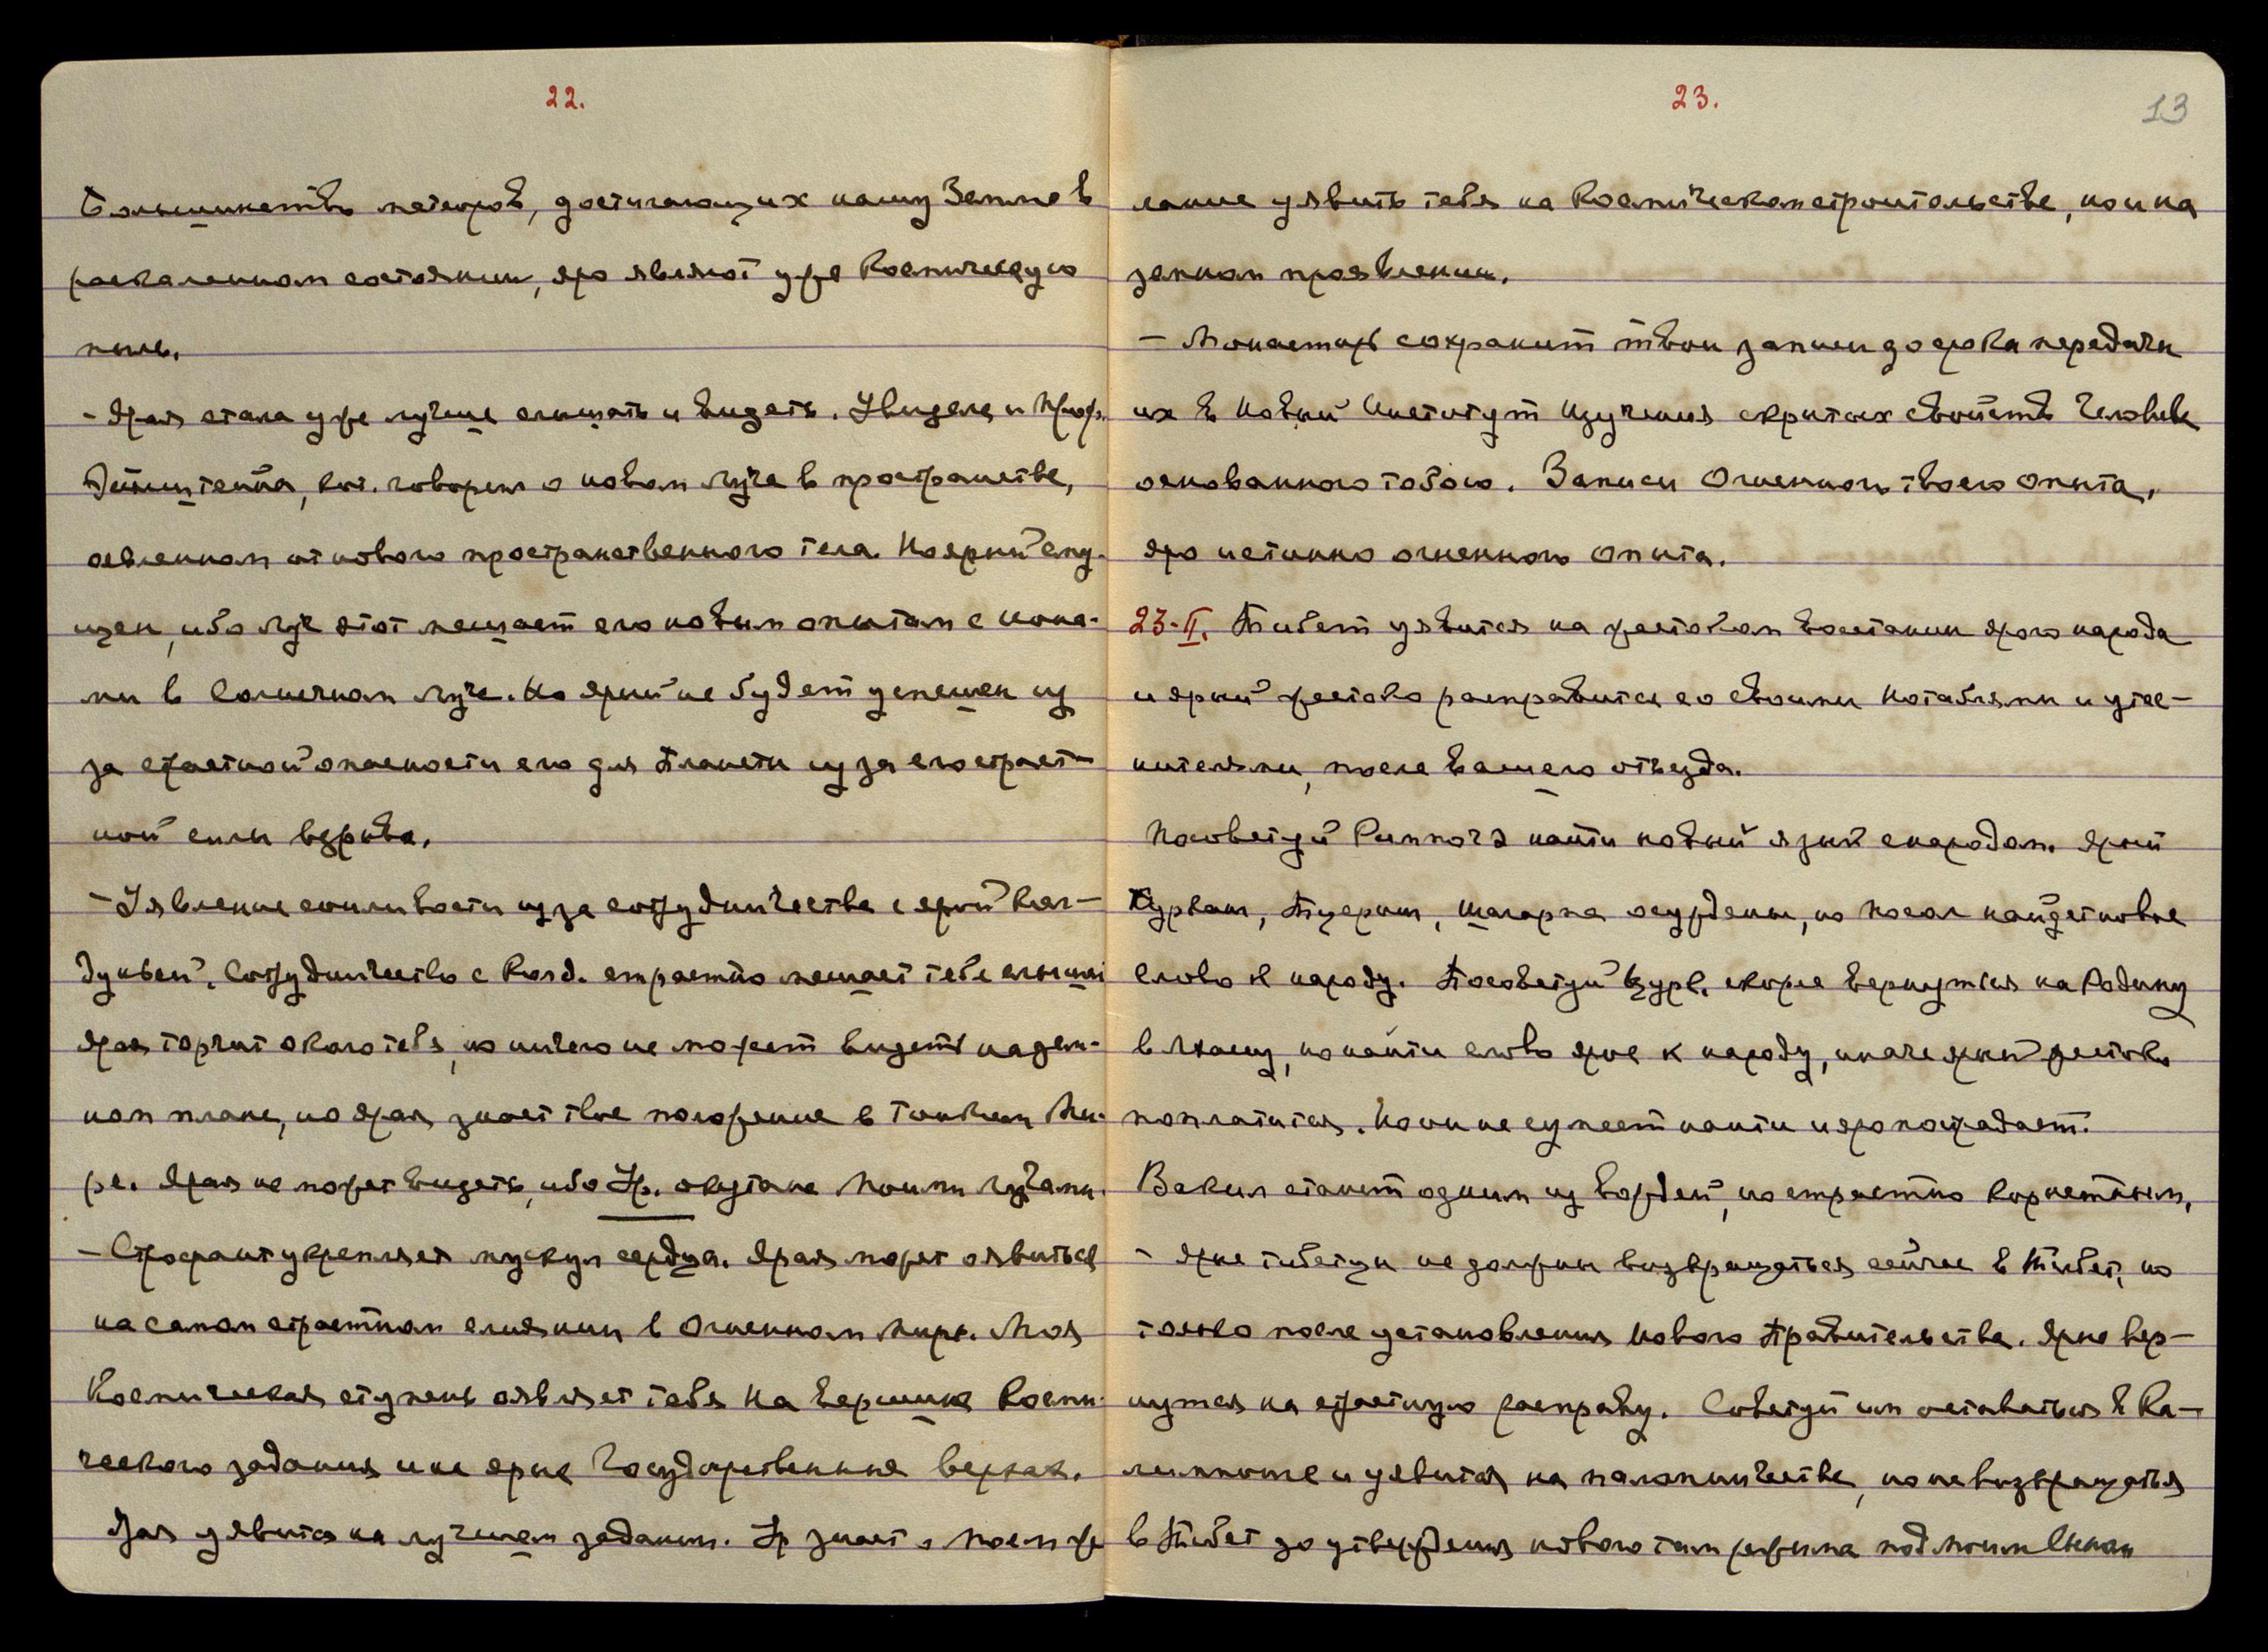 22.
Большинство метеоров, достигающих нашу Землю в
раскаленном состоянии, яро являют уже Космическую
пыль.
- Ярая стала уже лучше слышать и видеть. Увидела и Проф.
Эйнштейна, кот. говорил о новом Луче в пространстве,
явленном от нового пространственного тела. Но ярый сму-
щен, ибо Луч этот мешает его новым опытам с иона-
ми в Солнечном Луче. Но ярый не будет успешен из
за страстной опасности его для Планеты из за его страст-
ной силы взрыва.
- Уявление сонливости из за сотрудничества с ярой Кол-
дуньей. Сотрудничество с Колд. страстно мешает тебе слышать
ярая торчит около тебя, но ничего не может видеть на зем-
ном плане, но ярая знает твое положение в Тонком Ми-
ре. Ярая не может видеть, ибо Ур. окутана Моими Лучами.
- Строфант укрепляет мускул сердца. Ярая может оявиться
на самом страстном слиянии в Огненном Мире. Моя
Космическая ступень оявляет тебя на вершине Косми-
ческого задания и не ярые Государственные верхах.
Ярая уявится на лучшем задании. Ур знает о Моем же
23.
13
лание уявить тебя на Космическом строительстве, но и на
земном проявлении.
- Монастырь сохранит твои записи до срока передачи
их в Новый Институт Изучения скрытых свойств Человека
основанного тобою. Записи Огненного твоего опыта,
яро истинно огненного опыта.
23-II. Тибет уявится на жестоком восстании ярого народа
и ярый жестоко расправится со своими Нотаблями и утес-
нителями, после вашего отъезда.
Посоветуй Римпоче найти новый язык с народом. Ярый
Курван, Церинг, осуждены, но Посол найдет новое
слово к народу. Посоветуй Курв. скорее вернуться на Родину
в Лхасу, но найти слово ярое к народу, иначе ярый жестоко
поплатится. Но он не сумеет найти и яро пострадает.
Вакил станет одним из вождей, но страстно корыстным.
- Ярые тибетцы не должны возвращаться сейчас в Тибет, но
только после установления Нового Правительства. Ярые вер-
нутся на страстную расправу. Советуй им оставаться в Ка-
лимпонге и уявиться на паломничестве, но не возвращаться
в Тибет до утверждения нового там режима под Моим Сыном